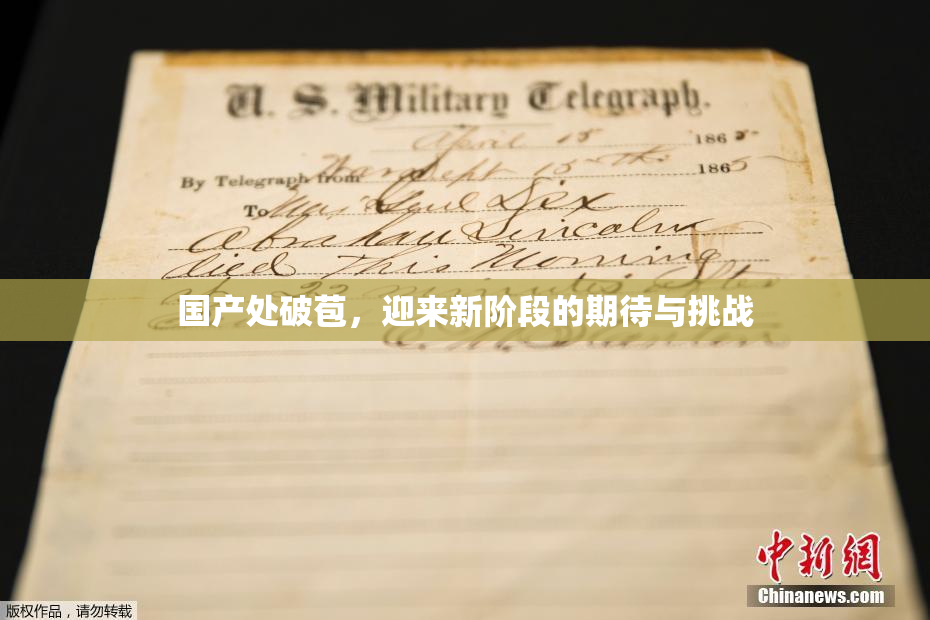 U. S. Military Telegraph.
April 15 1865
By Telegraph from War Dept 15th 1865
To Maj Genl Dix
Abraham Lincoln
died This Morning
at 22 minutes after
国产处破苞，迎来新阶段的期待与挑战
Stanton
中新网
Chinanews.com
版权作品，请勿转载